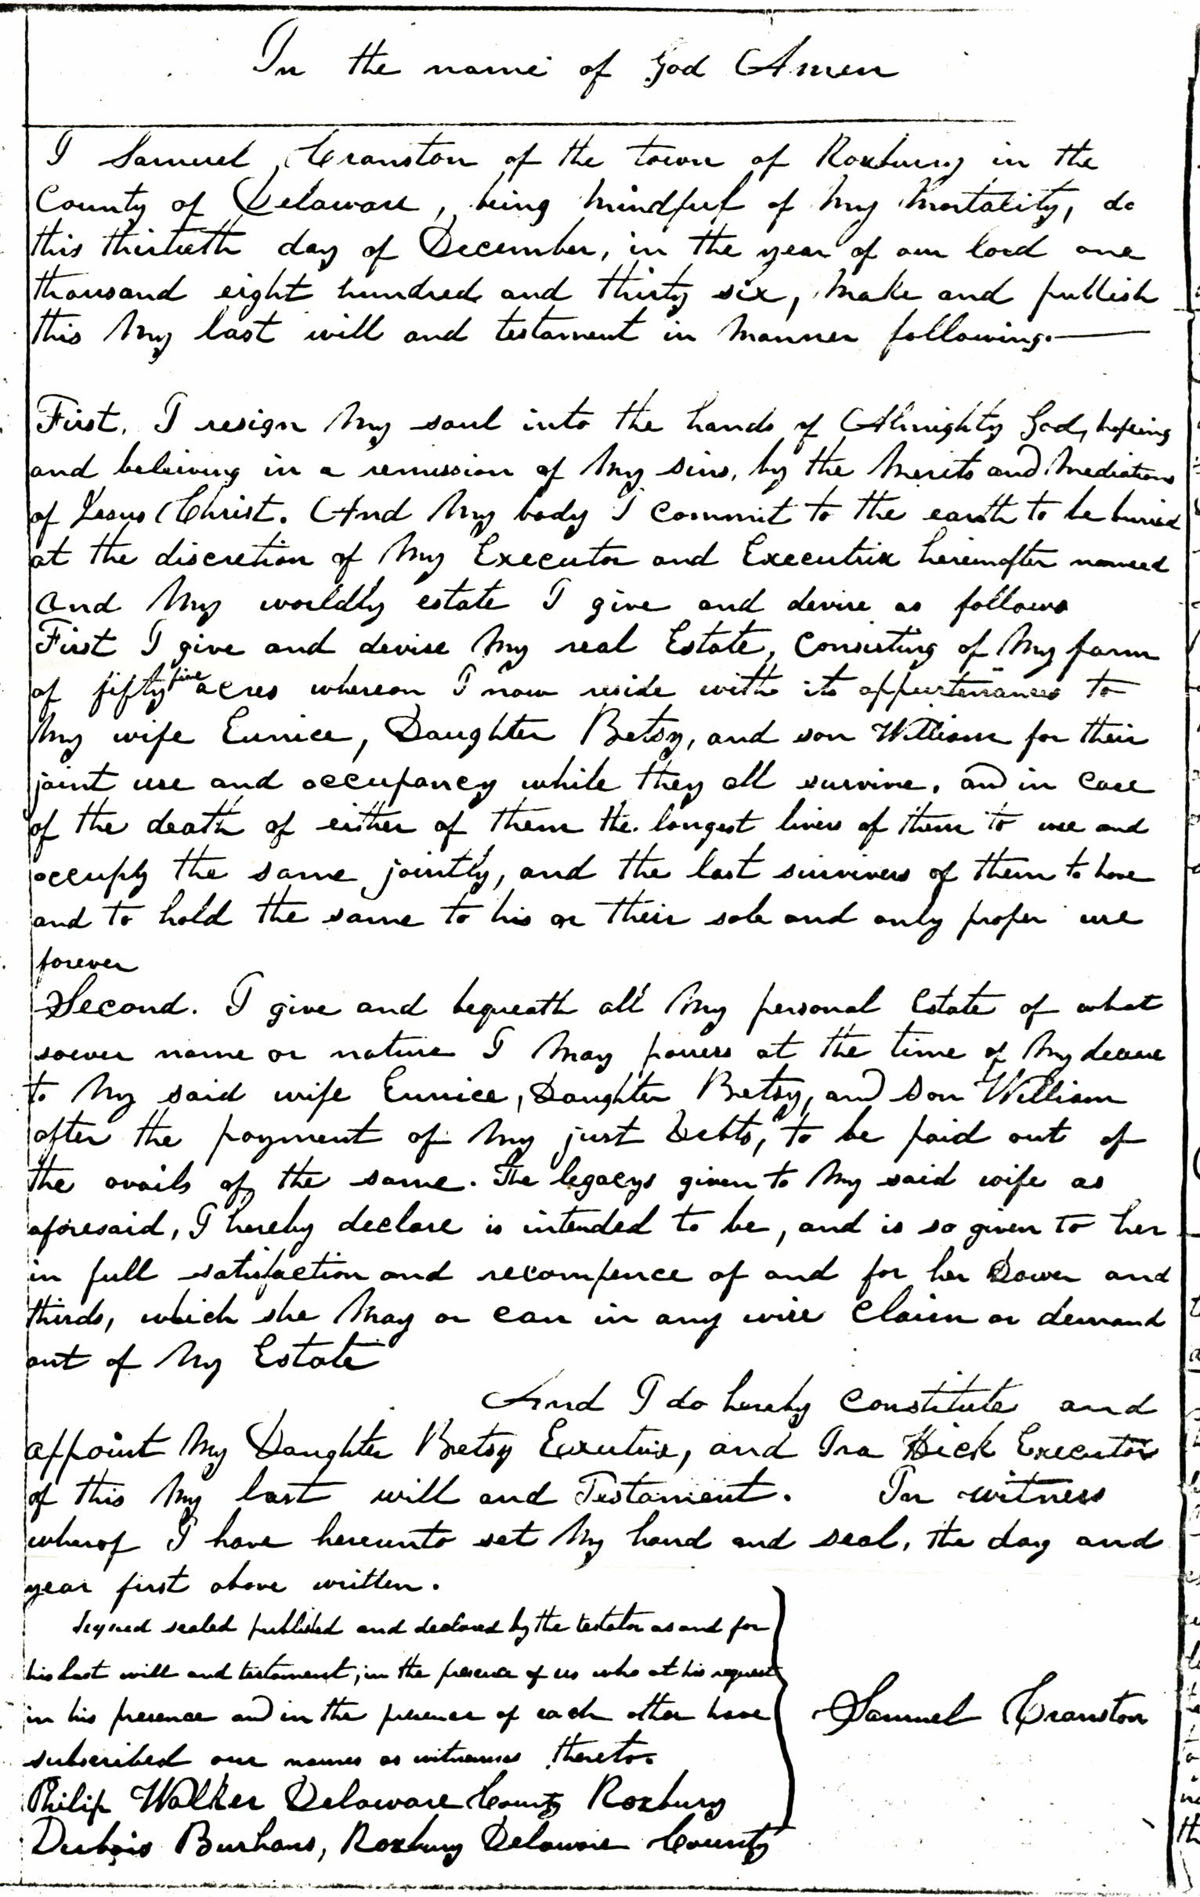 In the name of God Amen
I Samuel Cranston of the town of Roxbury in the
County of Delaware, being mindful of my mortality, do
this thirtieth day of December, in the year of our lord one
thousand eight hundred and thirty six, make and publish
this my last will and testament in manner following.
First, I resign my soul into the hands of Almighty God, hopeing
and believing in a remission of my sins, by the merits and mediations
of Jesus Christ. And my body I commit to the earth to be buried
at the discretion of my Executor and Executrix hereinafter named
and my worldly estate I give and devise as follows
First I give and devise my real Estate, consisting of my farm
of fifty five acres whereon I now reside with its appurtenances to
my wife Eunice, Daughter Betsy, and son William for their
joint use and occupancy while they all survive, and in case
of the death of either of them the longest livers of them to use and
occupy the same jointly, and the last survivers of them to have
and to hold the same to his or their sole and only proper use
forever
Second. I give and bequeath all my personal Estate of what
soever name or nature I may possess at the time of my decease
to my said wife Eunice, Daughter Betsy, and Son William
after the payment of my just Debts, to be paid out of
the avails of the same. The legacys given to my said wife as
aforesaid, I hereby declare is intended to be, and is so given to her
in full satisfaction and recompence of and for her Dower and
thirds, which she may or can in any wise claim or demand
out of my Estate
And I do hereby constitute and
appoint my Daughter Betsy Executrix, and Ira Hick Executor
of this my last will and Testament. In witness
wherof I have hereunto set my hand and seal, the day and
year first above written.
Signed sealed published and declared by the testator as and for
his last will and testament, in the presence of us who at his request
in his presence and in the presence of each other have
subscribed our names as witnesses thereto.
Samuel Cranston
Philip Walker Delaware County Roxbury
Dubois Burhans, Roxbury Delaware County